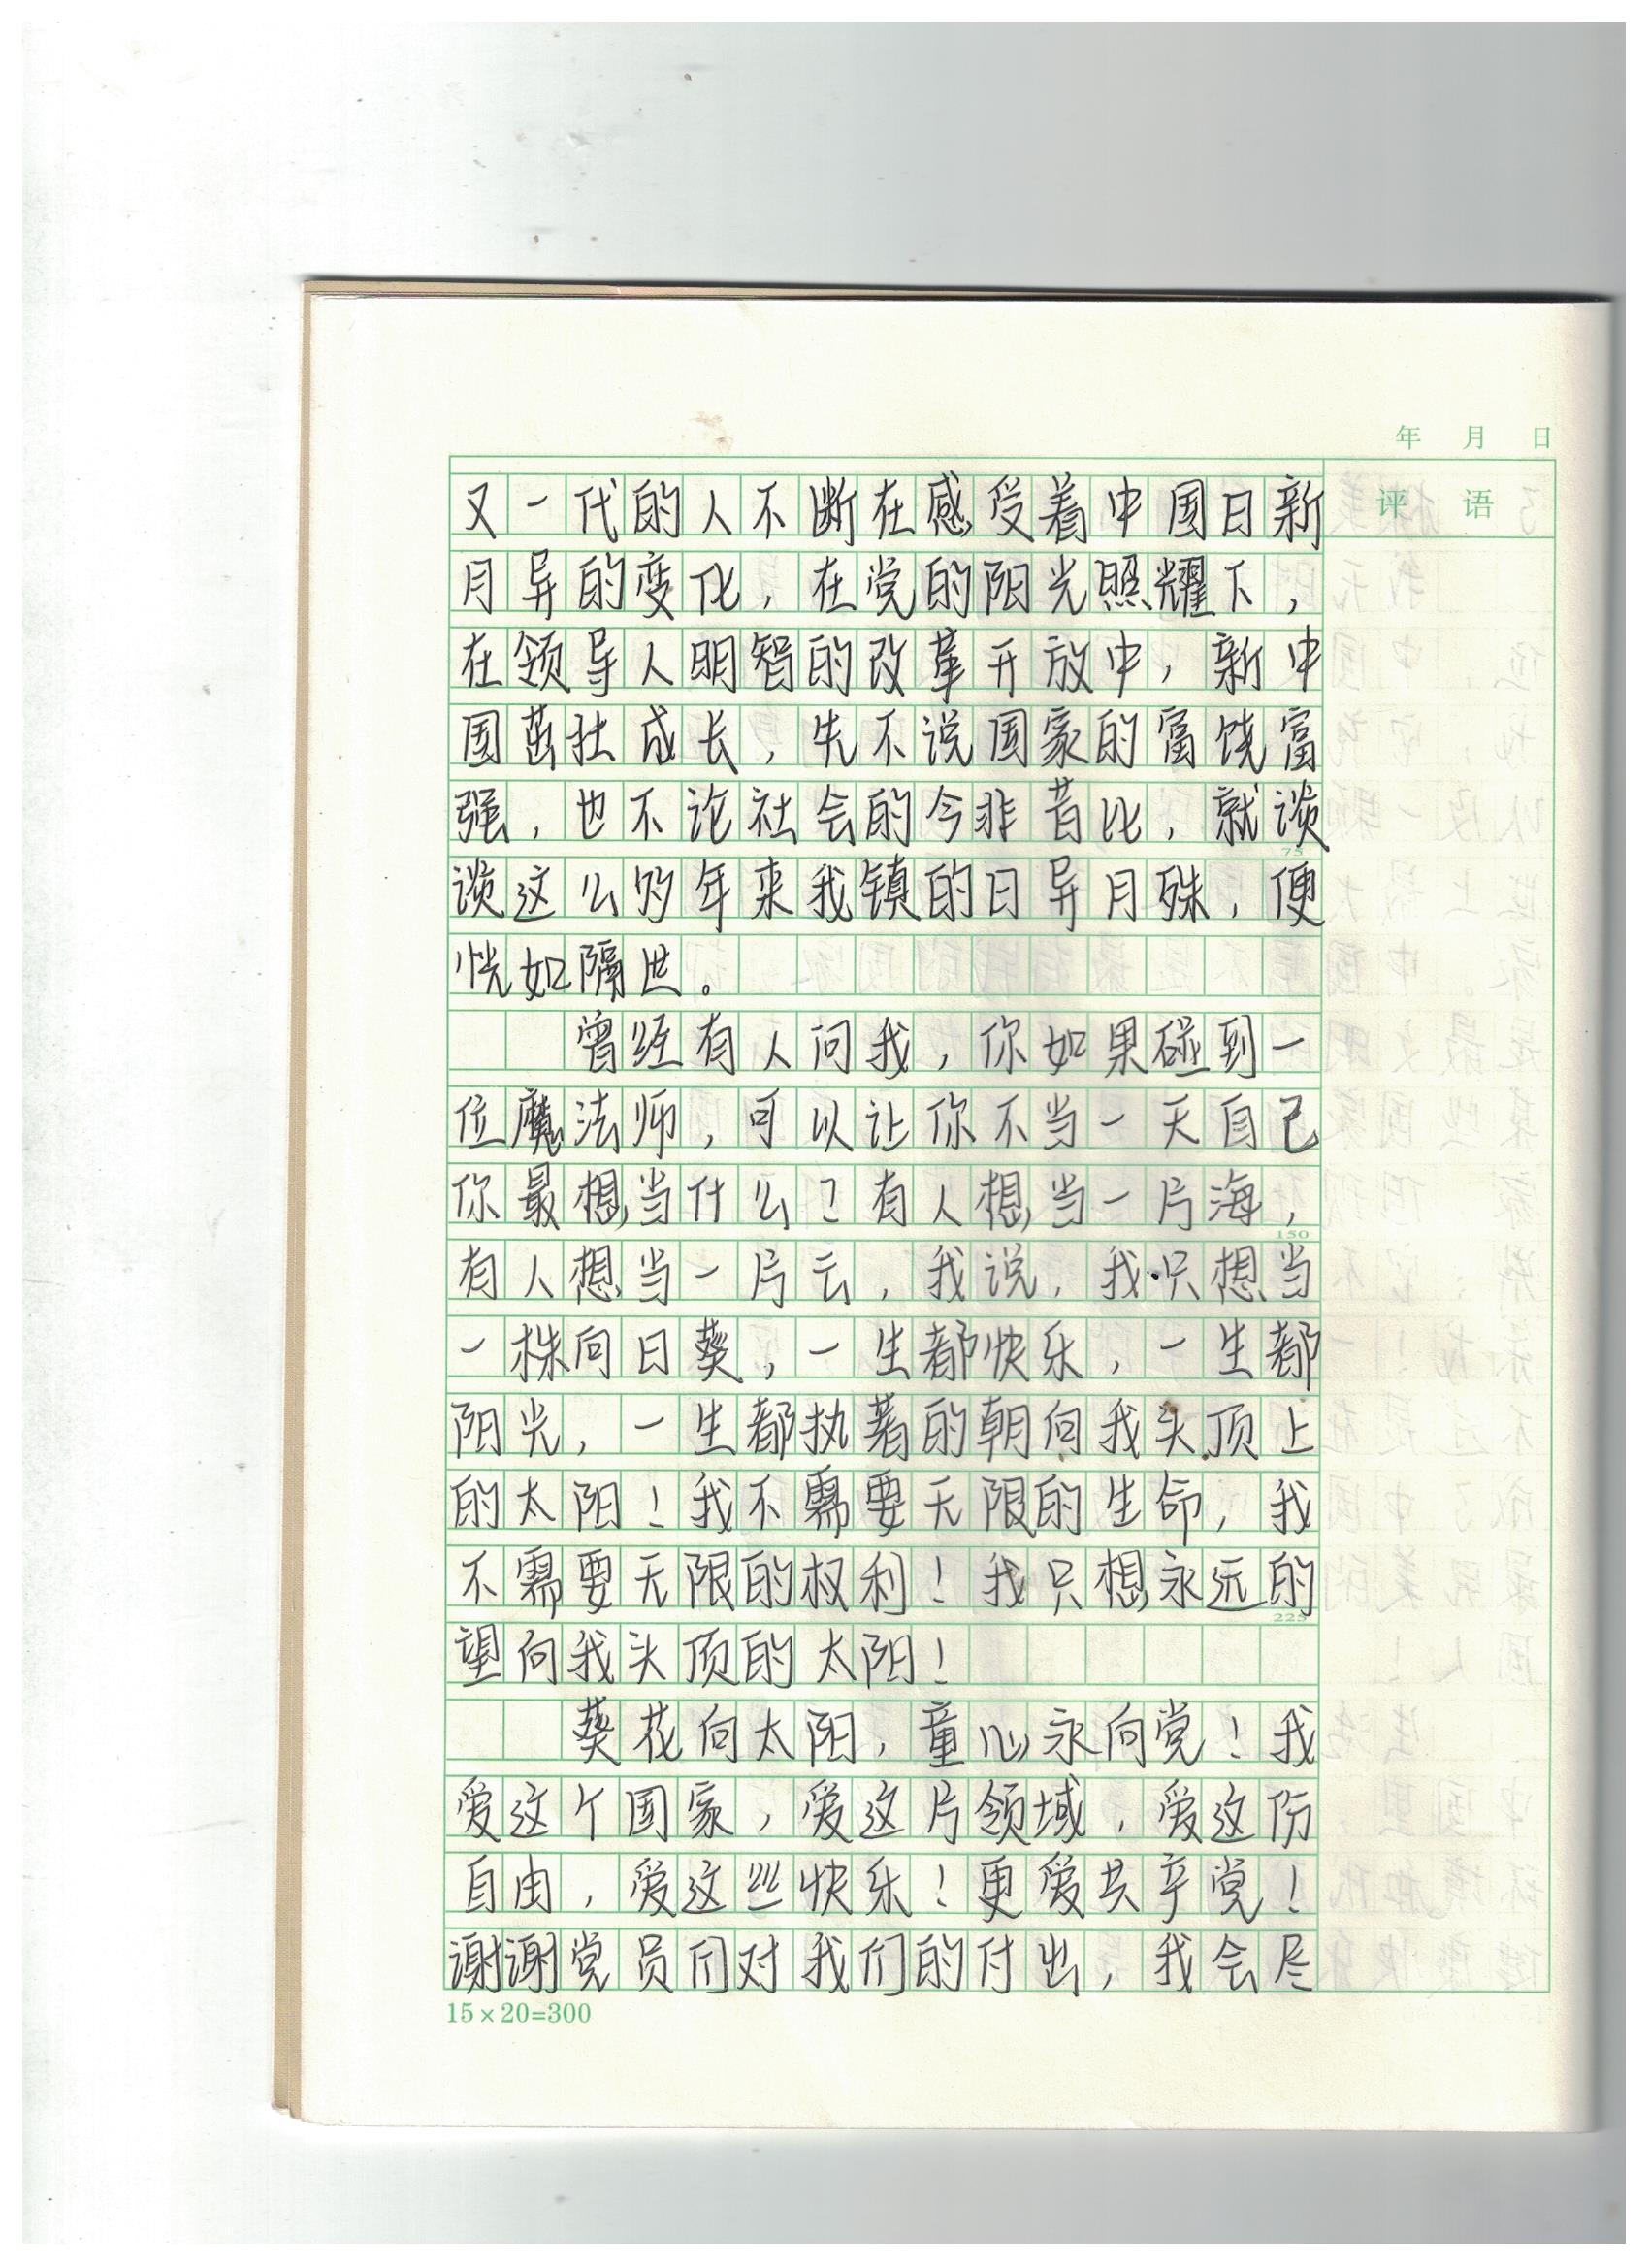 年 月 日
评 语
又一代的人不断在感受着中国日新
月异的变化，在党的阳光照耀下，
在领导人明智的改革开放中，新中
国茁壮成长，先不说国家的富饶富
强，也不论社会的今非昔比，就谈
75
谈这么多年来我镇的日异月殊，便
恍如隔世。
曾经有人问我，你如果碰到一
位魔法师，可以让你不当一天自己
你最想当什么？有人想当一片海，
150
有人想当一片云，我说，我只想当
一株向日葵，一生都快乐，一生都
阳光，一生都执着的朝向我头顶上
的太阳！我不需要无限的生命，我
不需要无限的权利！我只想永远的
225
望向我头顶的太阳！
葵花向太阳，童心永向党！我
爱这个国家，爱这片领域，爱这份
自由，爱这丝快乐！更爱共产党！
谢谢党员们对我们的付出，我会尽
15×20=300